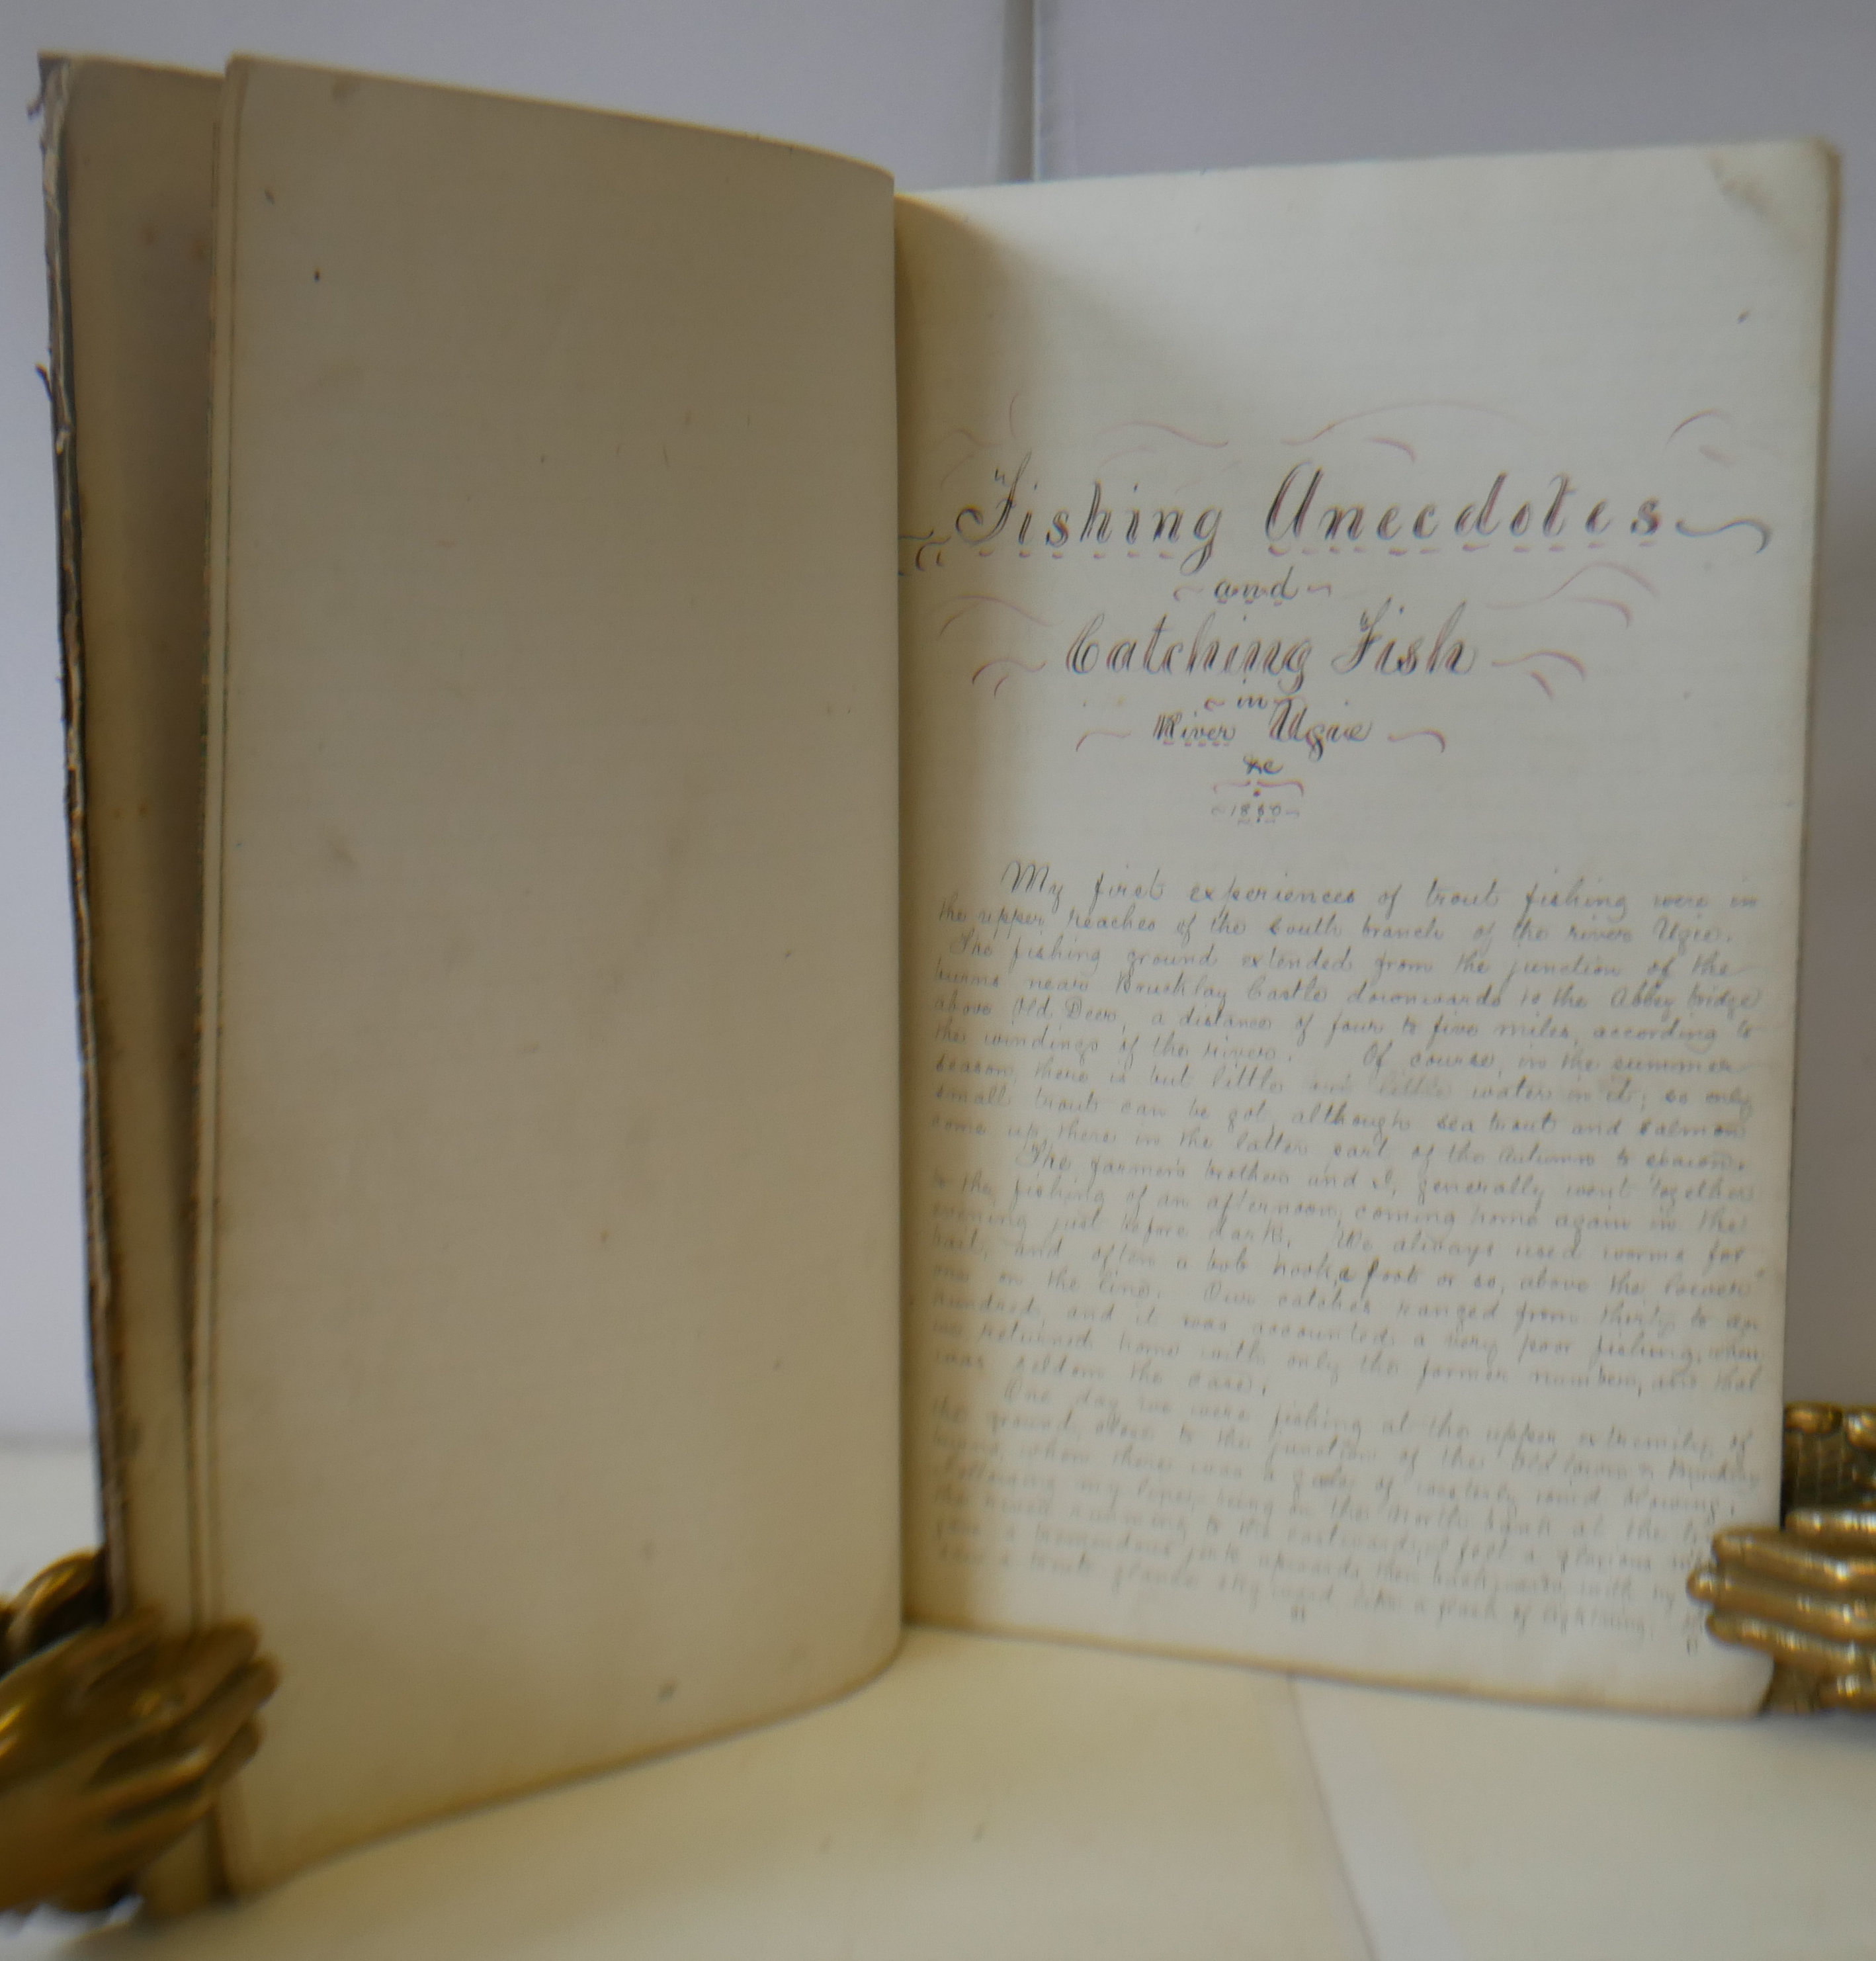 "Fishing Anecdotes
and
Catching "Fish
in
River Ugie
&c
My first experiences of trout fishing were in
the upper reaches of the south branch of the river Ugie.
The fishing ground extended from the junction of the
burns near Brucklay Castle downwards to the Abbey bridge
above Old Deer, a distance of four to five miles, according to
the windings of the river. Of course, in the summer
season there is but little water in it; so only
small trout can be got, although sea trout and salmon
come up there in the latter part of the Autumn to spawn.
The farmer's brother and I, generally went together
to the fishing of an afternoon, coming home again in the
evening just before dark. We always used worms for
bait, and often a bob hook, a foot or so, above the lower
one on the line. Our catches ranged from thirty to an
hundred, and it was accounted a very poor fishing, when
we returned home with only the former number, and that
was seldom the case.
One day we were fishing at the upper extremity of
the ground, close to the junction of the
burns, when there was a gale of westerly wind blowing.
my line, being on the north bank at the
the river running to the eastward, I felt a glorious
gave a tremendous jerk upwards, then backwards, with my
a trout flash like a flash of lightning.